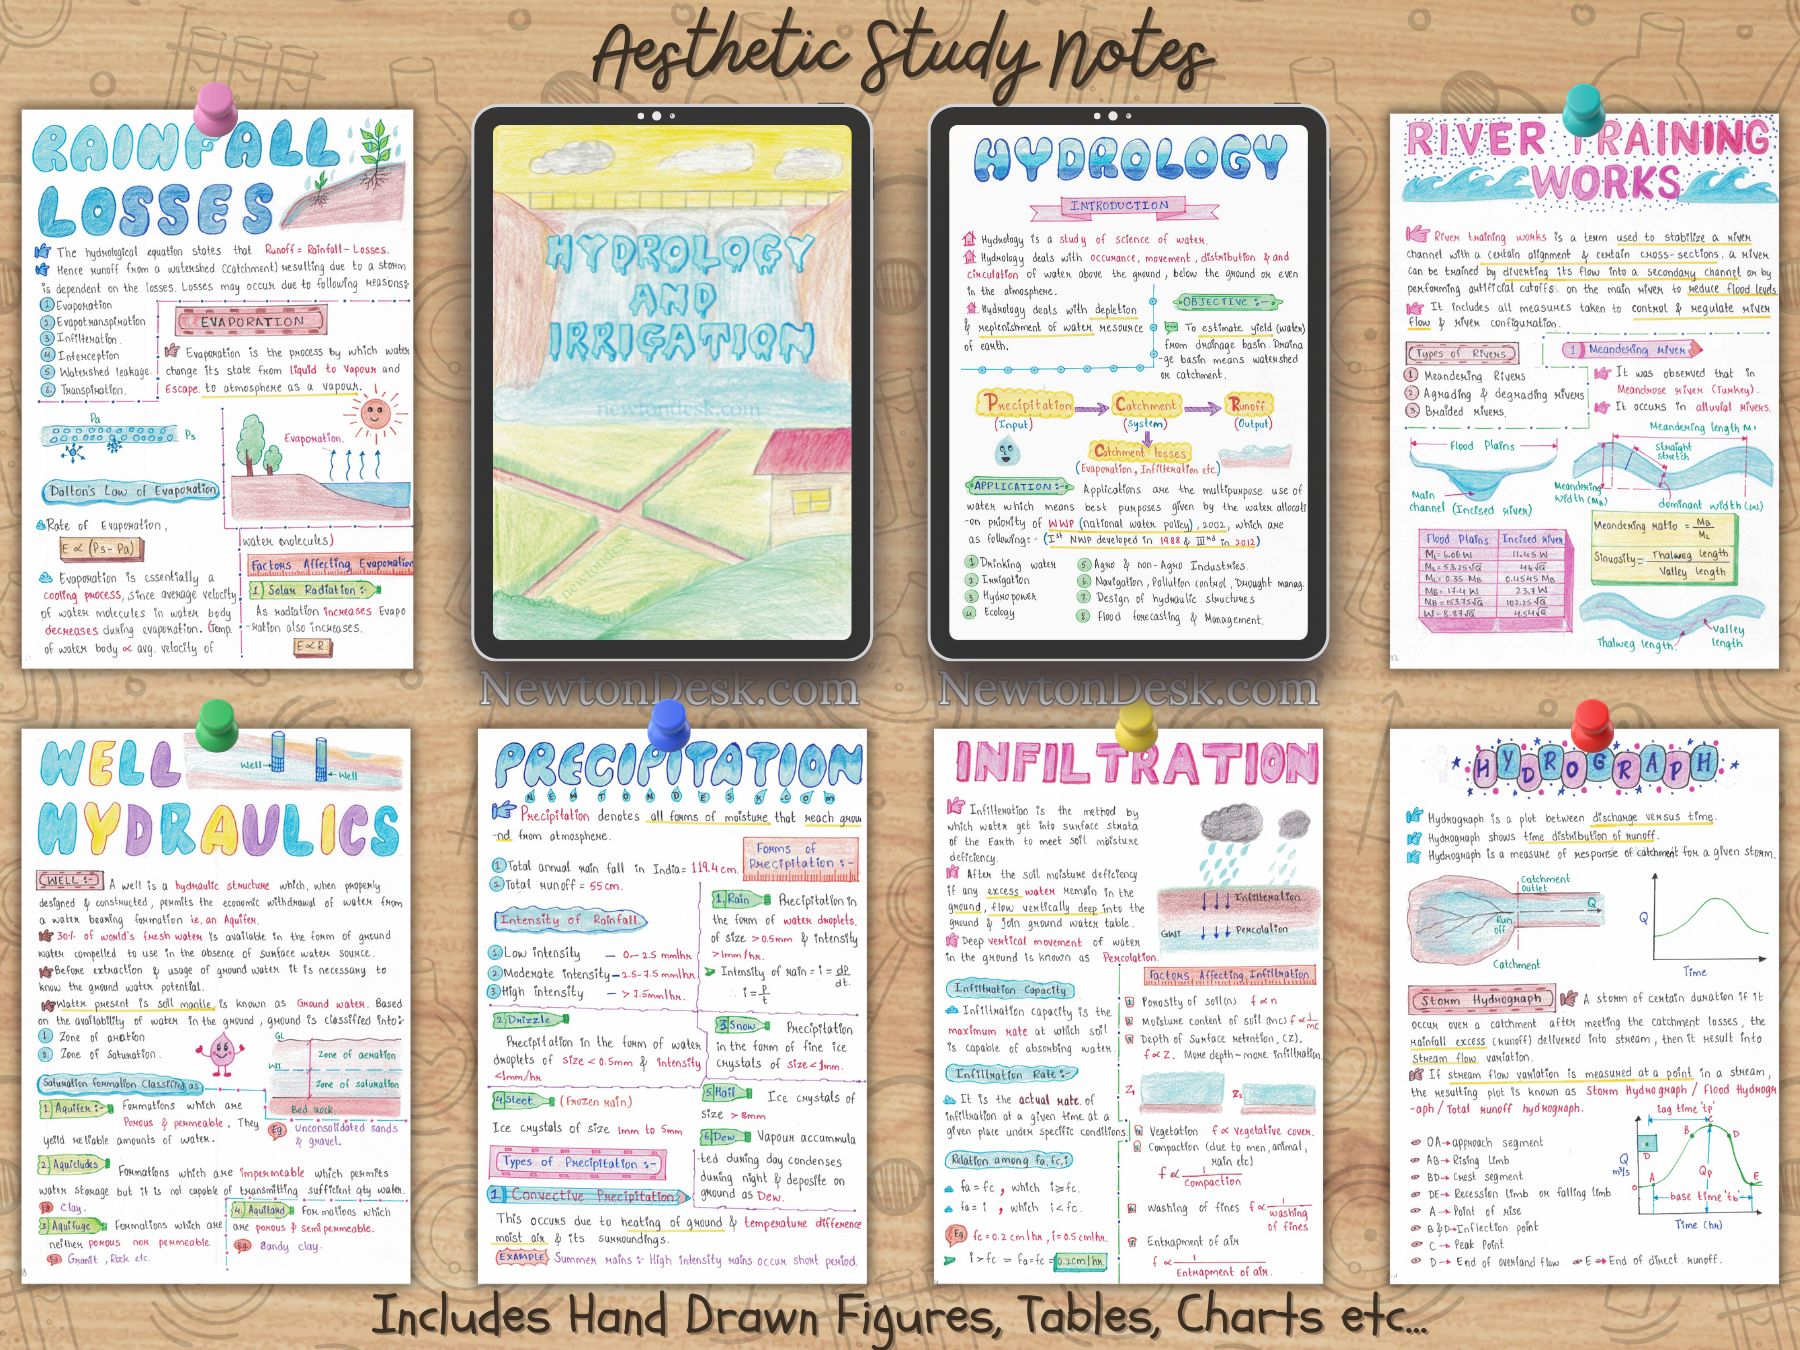 Aesthetic Study Notes
RAINFALL
LOSSES
The hydrological equation states that Runoff = Rainfall - Losses.
Hence runoff from a watershed (catchment) resulting due to a storm
is dependent on the losses. Losses may occur due to following reasons:
1 Evaporation
2 Evapotranspiration
3 Infilteration.
4 Interception
5 Watershed leakage.
6 Transpiration.
EVAPORATION
Evaporation is the process by which water
change its state from liquid to Vapour and
Escape to atmosphere as a vapour.
Pa
Ps
Evaporation.
Dalton's Law of Evaporation
Rate of Evaporation,
E ∝ (Ps - Pa)
Evaporation is essentially a
cooling process, since average velocity
of water molecules in water body
decreases during evaporation. (Temp.
of water body ∝ avg. velocity of
water molecules)
Factors Affecting Evaporation
1) Solar Radiation :-
As radiation increases Evapo
-ration also increases.
E ∝ R
HYDROLOGY
AND
IRRIGATION
newtondesk.com
HYDROLOGY
INTRODUCTION
Hydrology is a study of science of water.
Hydrology deals with occurance, movement, distribution & and
circulation of water above the ground, below the ground or even
in the atmosphere.
Hydrology deals with depletion
& replenishment of water resource
of earth.
OBJECTIVE :-
To estimate yield (water)
from drainage basin. Draina
-ge basin means watershed
or catchment.
Precipitation
(Input)
Catchment
(System)
Runoff.
(Output)
Catchment losses
(Evaporation, Infilteration etc.)
APPLICATION :- Applications are the multipurpose use of
water which means best purposes given by the water allocati
-on priority of WWP (national water policy), 2002, which are
as following:- (Ist NWP developed in 1988 & IIIrd in 2012)
1 Drinking water
2 Irrigation
3 Hydropower
4 Ecology
5 Agro & non-Agro Industries.
6 Navigation, Pollution control, Drought manag.
7 Design of hydraulic structures
8 Flood forecasting & Management.
RIVER TRAINING
WORKS
River training works is a term used to stabilize a river
channel with a certain alignment & certain cross-sections, a river
can be trained by diverting its flow into a secondary channel or by
performing artificial cutoffs on the main river to reduce flood levels.
It includes all measures taken to control & regulate river
flow & river configuration.
Types of Rivers
1 Meandering Rivers
2 Agrading & degrading rivers
3 Braided rivers.
1. Meandering river
It was observed that in
Meandrose river (Turkey).
It occurs in alluvial rivers.
Flood Plains
Main
channel (Incised river)
Meandering length ML
straight
stretch
Meandering
width (MB)
dominant width (W)
Flood Plains Incised river
ML = 6.06 W 11.45 W
ML = 53.25√Q 46√Q
ML = 0.35 MB 0.4545 MB
MB = 17.4 W 23.7 W
MB = 153.75√Q 102.25√Q
W = 8.87√Q 4.54√Q
Meandering ratio = MB/ML
Sinuosity = Thalweg length/Valley length
Thalweg length.
valley
length
NewtonDesk.com
NewtonDesk.com
WELL
HYDRAULICS
Well
Well
WELL :- A well is a hydraulic structure which, when properly
designed & constructed, permits the economic withdrawal of water from
a water bearing formation ie, an Aquifer.
30% of world's fresh water is available in the form of ground
water compelled to use in the absence of surface water source.
Before extraction & usage of ground water it is necessary to
know the ground water potential.
Water present is soil mantle, is known as Ground water. Based
on the availability of water in the ground, ground is classified into:-
1 Zone of aration
2 Zone of Saturation.
GL
WT
Zone of aeration
Zone of saturation
Bed rock.
Saturation formation Classified as
1) Aquifer :- Formations which are
Porous & permeable. They
yeild reliable amounts of water.
Eg Unconsolidated sands
& gravel.
2) Aquicludes Formations which are impermeable which permits
water storage but it is not capable of transmitting sufficient qty water.
Eg Clay.
3 Aquifuge Formations which are
neither porous nor permeable
Eg Granit, Rock etc.
4. Aquitard Formations which
are porous & semipermeable.
Eg Sandy clay.
PRECIPITATION
NEWTONDESK.COM
Precipitation denotes all forms of moisture that reach grou
-nd from atmosphere.
1 Total annual rain fall in India = 119.4 cm.
2 Total runoff = 55 cm.
Forms of
Precipitation :-
Intensity of Rainfall.
1 Low intensity - 0-2.5 mm/hr
2 Moderate intensity - 2.5-7.5 mm/hr
3 High intensity - > 7.5mm/hr.
1. Rain Precipitation in
the form of water droplets.
of size > 0.5mm & intensity
> 1mm/hr.
Intensity of rain = i = dp/dt.
∴ i = P/t
2. Drizzle
Precipitation in the form of water
droplets of size < 0.5mm & intensity
<1mm/hr
3 Snow Precipitation
in the form of fine ice
crystals of size < 1mm.
4 Sleet (frozen rain)
Ice crystals of size 1mm to 5mm
5. Hail Ice crystals of
size > 8mm
6. Dew Vapour accumula
-ted during day condenses
during night & deposite on
ground as Dew.
Types of Precipitation :-
1. Convective Precipitation
This occurs due to heating of ground & temperature difference
moist air & its surroundings.
EXAMPLE Summer rains :- High intensity rains occur short period.
INFILTRATION
Infilteration is the method by
which water get into surface strata
of the Earth to meet soil moisture
deficiency.
After the soil moisture deficiency
if any excess water remain in the
ground, flow vertically deep into the
ground & join ground water table.
Deep vertical movement of water
in the ground is known as Percolation.
Infilteration
GWT
Percolation
Infiltration Capacity
Infiltration capacity is the
maximum rate at which soil
is capable of absorbing water
Infiltration Rate :-
It is the actual rate of
infiltration at a given time at a
given place under specific conditions.
Relation among fa, fc, i
fa = fc, which i ≥ fc.
fa = i, which i < fc.
Eg fc = 0.2 cm/hr, i = 0.5 cm/hr.
i > fc = fa = fc = 0.2cm/hr.
Factors Affecting Infiltration
Porosity of soil (n) f ∝ n
Moisture content of soil (mc) f ∝ 1/mc
Depth of Surface retention, (Z).
f ∝ Z. More depth - more infiltration.
Z1
Z2
Vegetation f ∝ vegetative cover.
Compaction (due to men, animal,
rain etc)
f ∝ 1/compaction
Washing of fines f ∝ 1/washing of fines
Entrapment of air
f ∝ 1/Entrapment of air.
HYDROGRAPH
Hydrograph is a plot between discharge versus time.
Hydrograph shows time distribution of runoff.
Hydrograph is a measure of response of catchment for a given storm.
Catchment
outlet
Run
off
Q
Catchment
Q
Time
Storm Hydrograph A storm of certain duration if it
occur over a catchment after meeting the catchment losses, the
rainfall excess (runoff) delivered into stream, then it result into
stream flow variation.
If stream flow variation is measured at a point in a stream,
the resulting plot is known as Storm Hydrograph / Flood Hydrogr
-aph / Total runoff hydrograph.
OA → approach segment
AB → Rising limb
BD → Crest segment
DE → Recession limb or falling limb
A → Point of rise
B & D → Inflection point
C → Peak Point
D → End of overland flow
E → End of direct runoff.
lag time 'tp'
B
C
D
D
Q
m³/s
Qp
A
E
O
base time 'tb'
Time (hr)
Includes Hand Drawn Figures, Tables, Charts etc...